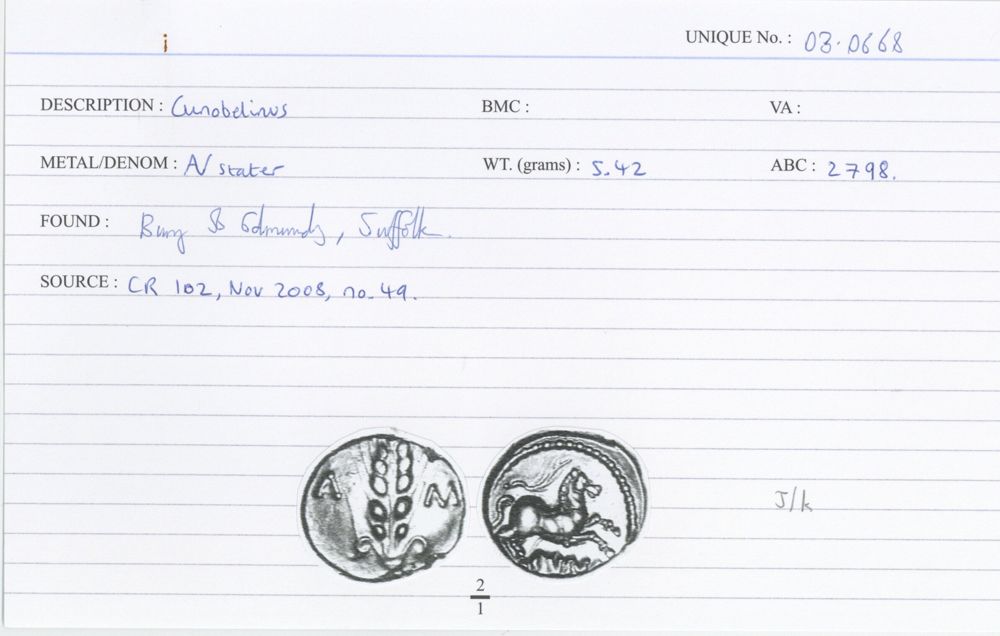 i
UNIQUE No. : 03.0668
DESCRIPTION : Cunobelinus BMC : VA :
METAL/DENOM : A/ stater WT. (grams) : 5.42 ABC : 2798.
FOUND : Bury St Edmunds, Suffolk.
SOURCE : CR 102, Nov 2008, no. 49.
A M
J/k
2
1